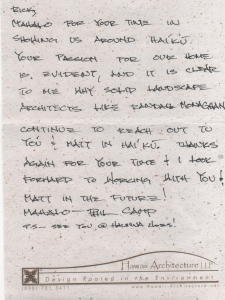 RICK,
MAHALO FOR YOUR TIME IN
SHOWING US AROUND HA'IKU.
YOUR PASSION FOR OUR HOME
IS EVIDENT, AND IT IS CLEAR
TO ME WHY SOLID LANDSCAPE
ARCHITECTS LIKE RANDALL MONAGHAN
CONTINUE TO REACH OUT TO
YOU & MATT IN HA'IKU. THANKS
AGAIN FOR YOUR TIME & I LOOK
FORWARD TO WORKING WITH YOU &
MATT IN THE FUTURE!
MAHALO — CAMP
P.S. SEE YOU @
HAWAII ARCHITECTURE LLP
Design Rooted in the Environment